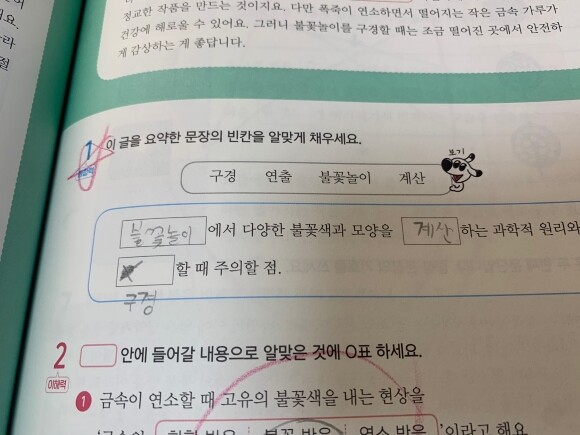 정교한 작품을 만드는 것이지요. 다만 폭죽이 연소하면서 떨어지는 작은 금속 가루가
건강에 해로울 수 있어요. 그러니 불꽃놀이를 구경할 때는 조금 떨어진 곳에서 안전하
게 감상하는 게 좋답니다.
1 이 글을 요약한 문장의 빈칸을 알맞게 채우세요.
보기
구경 연출 불꽃놀이 계산
불꽃놀이 에서 다양한 불꽃색과 모양을 계산 하는 과학적 원리와
할 때 주의할 점.
구경
2 안에 들어갈 내용으로 알맞은 것에 O표 하세요.
이해력
1 금속이 연소할 때 고유의 불꽃색을 내는 현상을
불꽃 반응 연소 반응 '이라고 해요